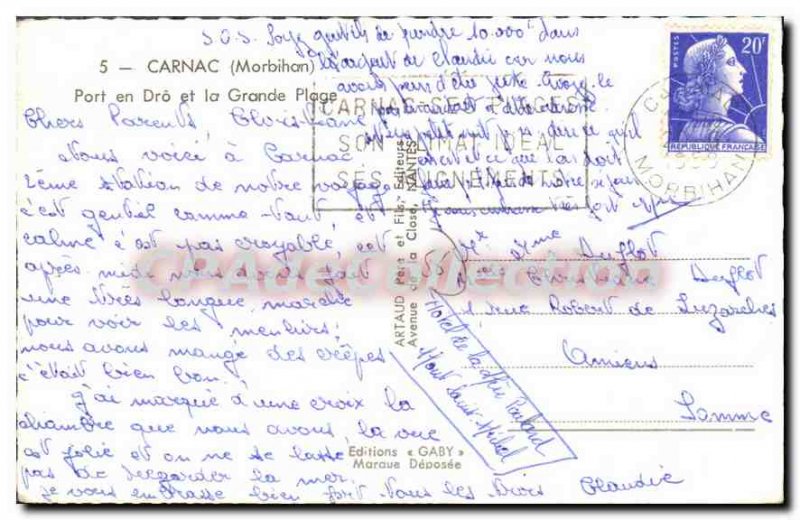 S.O.S. Soyez gentils de prendre 10.000 dans
l'argent de Claudie car nous
avons peur d'être juste
5 — CARNAC (Morbihan)
Port en Drô et la Grande Plage
Chers Parents, Christiane
Nous voici à Carnac
2ème station de notre voyage
c'est gentil comme tout, et
calme c'est pas croyable, cet
après midi nous avons fait
une très longue marche
pour voir les menhirs,
nous avons mangé des crêpes
c'était bien bon.
J'ai marqué d'une croix la
chambre que nous avons, la vue
est jolie et on ne se lasse
pas de regarder la mer.
Je vous embrasse bien fort tous les trois Claudie
CARNAC SES PLAGES
SON CLIMAT IDEAL
SES ALIGNEMENTS
ARTAUD Père et Fils, Editeurs
Avenue de la Close, NANTES
Editions « GABY »
Marque Déposée
POSTES 20F
REPUBLIQUE FRANÇAISE
CARNAC
MORBIHAN
Mr Mme Duflot
Christiane Duflot
rue Robert de Luzarches
Amiens
Somme
Hotel de la Mère Poulard
Mont Saint-Michel
CPAdeCollection